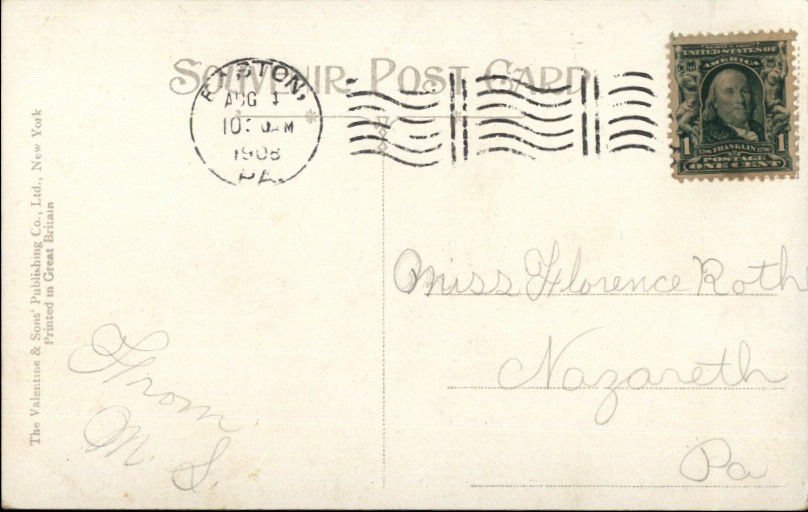 SOUVENIR POST CARD
EASTON,
AUG
10 AM
1908
PA.
SERIES 1902
UNITED STATES OF
AMERICA
1 FRANKLIN 1790 1
POSTAGE
ONE CENT
The Valentine & Sons' Publishing Co., Ltd., New York
Printed in Great Britain
Miss Florence Roth
Nazareth
Pa
From
M. S.